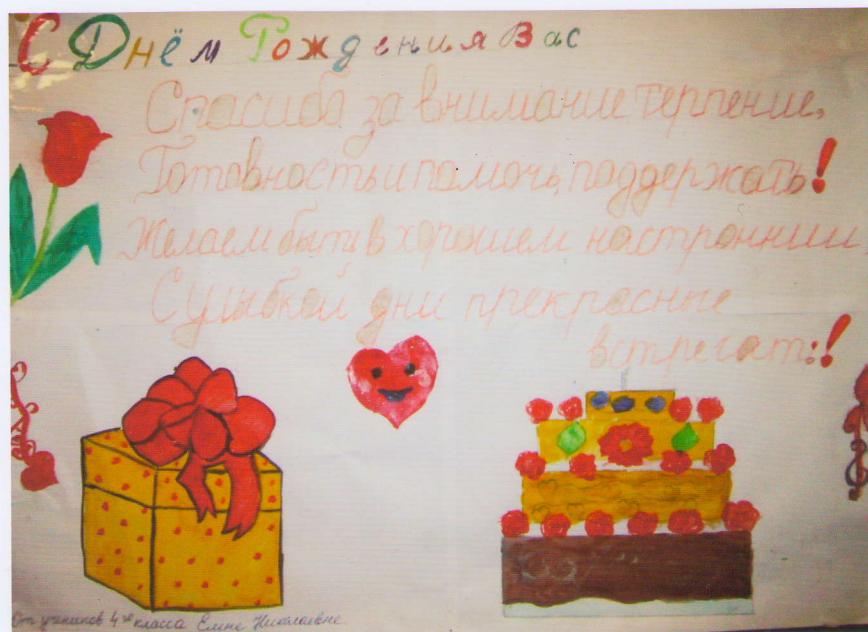 С Днём Рождения Вас
Спасиба за внимание терпение,
Готовность и помочь, поддержать!
Желаем быть в хорошем настроннии.
С улыбкой дни прекрасные
встречать!
От учеников 4го класса Елене Николаевне.